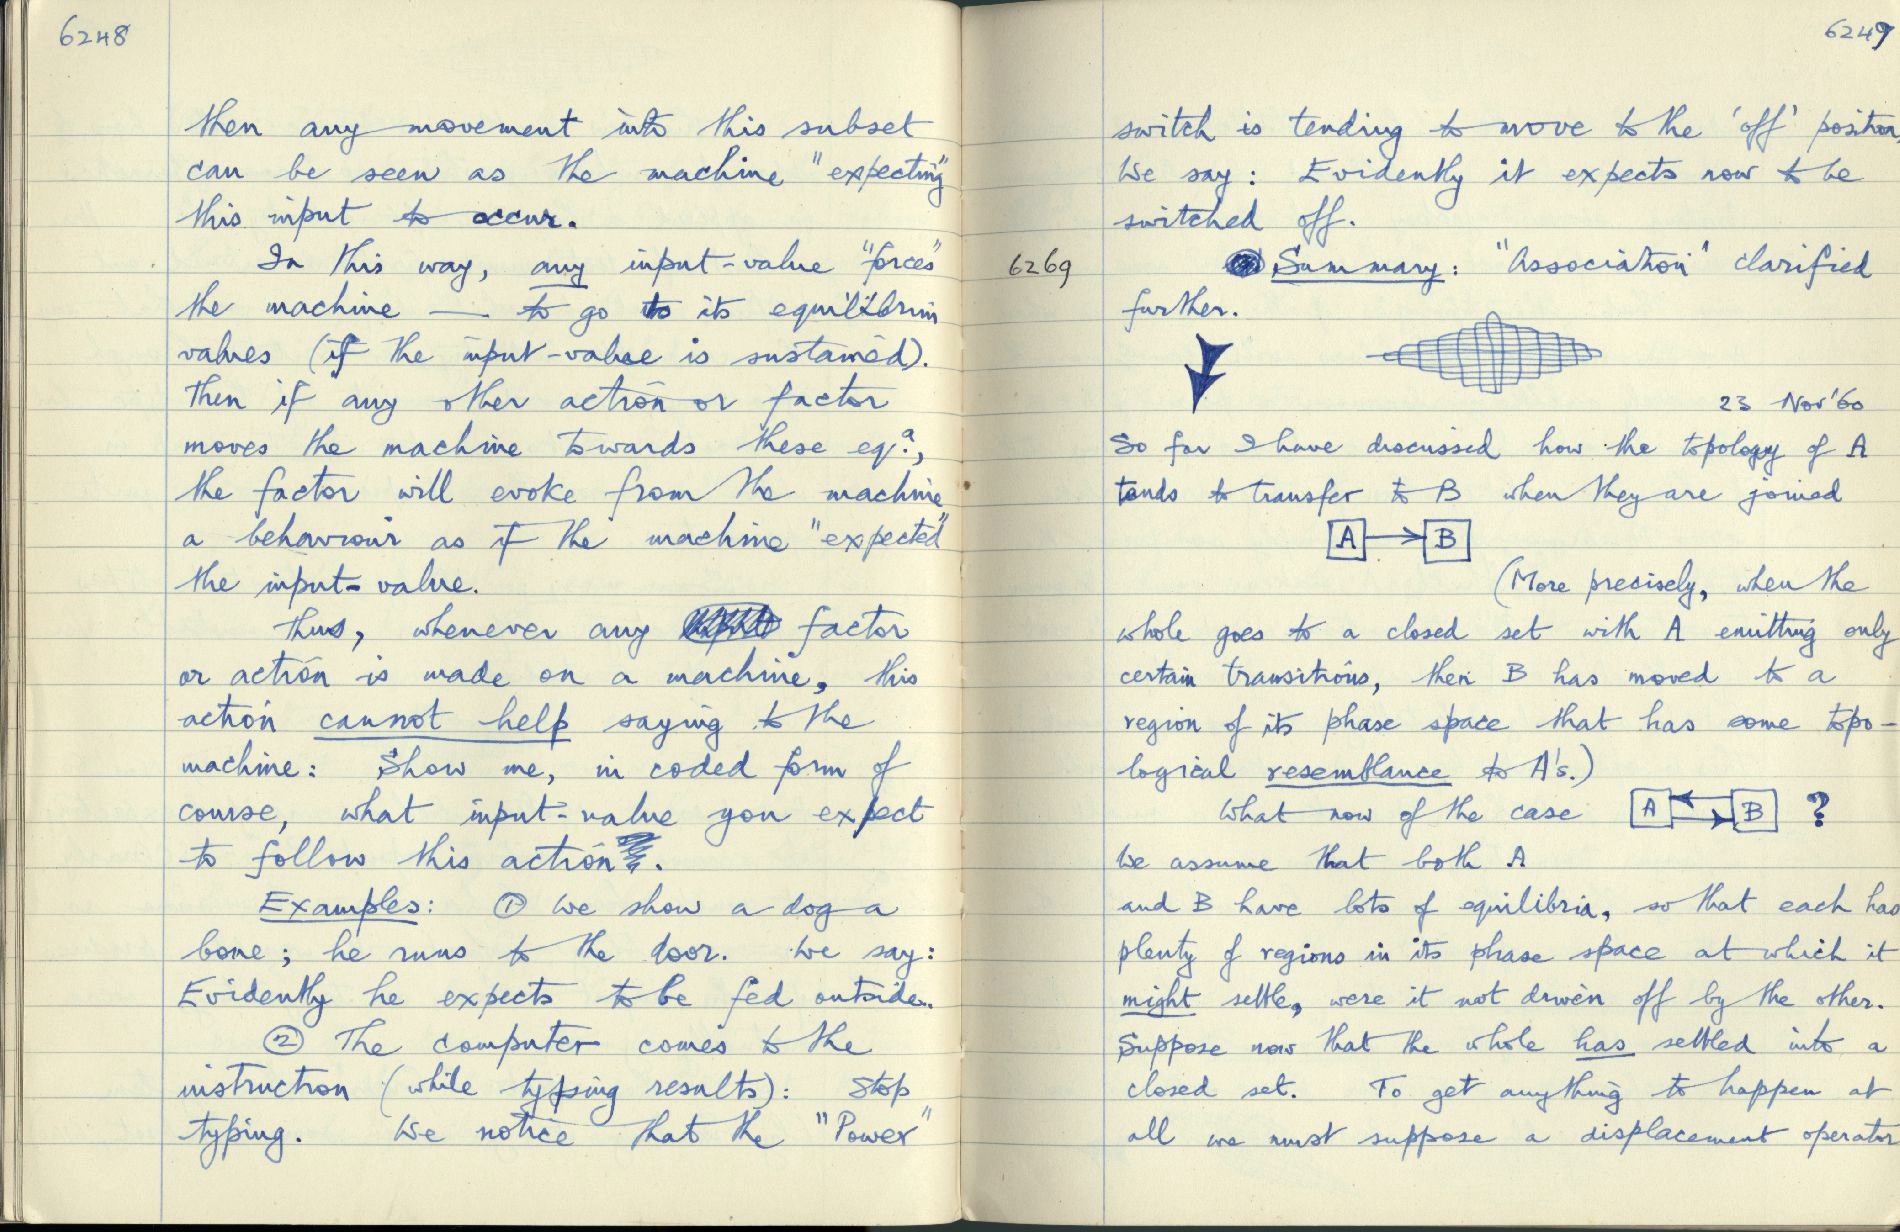 6248
then any movement into this subset
can be seen as the machine "expecting"
this input to occur.
In this way, any input-value "forces"
the machine — to go to its equilibrium
values (if the input-value is sustained).
Then if any other action or factor
moves the machine towards these eqa.,
the factor will evoke from the machine
a behaviour as if the machine "expected"
the input-value.
Thus, whenever any factor
or action is made on a machine, this
action cannot help saying to the
machine: Show me, in coded form of
course, what input-value you expect
to follow this action.
Examples: ① We show a dog a
bone; he runs to the door. We say:
Evidently he expects to be fed outside.
② The computer comes to the
instruction (while typing results): Stop
typing. We notice that the "Power"
6249
switch is tending to move to the 'off' position,
We say: Evidently it expects now to be
switched off.
6269
Summary: "Association" clarified
further.
23 Nov '60
So far I have discussed how the topology of A
tends to transfer to B when they are joined
A → B
(More precisely, when the
whole goes to a closed set with A emitting only
certain transitions, then B has moved to a
region of its phase space that has some topo-
logical resemblance to A's.)
What now of the case A ⇄ B ?
We assume that both A
and B have lots of equilibria, so that each has
plenty of regions in its phase space at which it
might settle, were it not driven off by the other.
Suppose now that the whole has settled into a
closed set. To get anything to happen at
all we must suppose a displacement operator